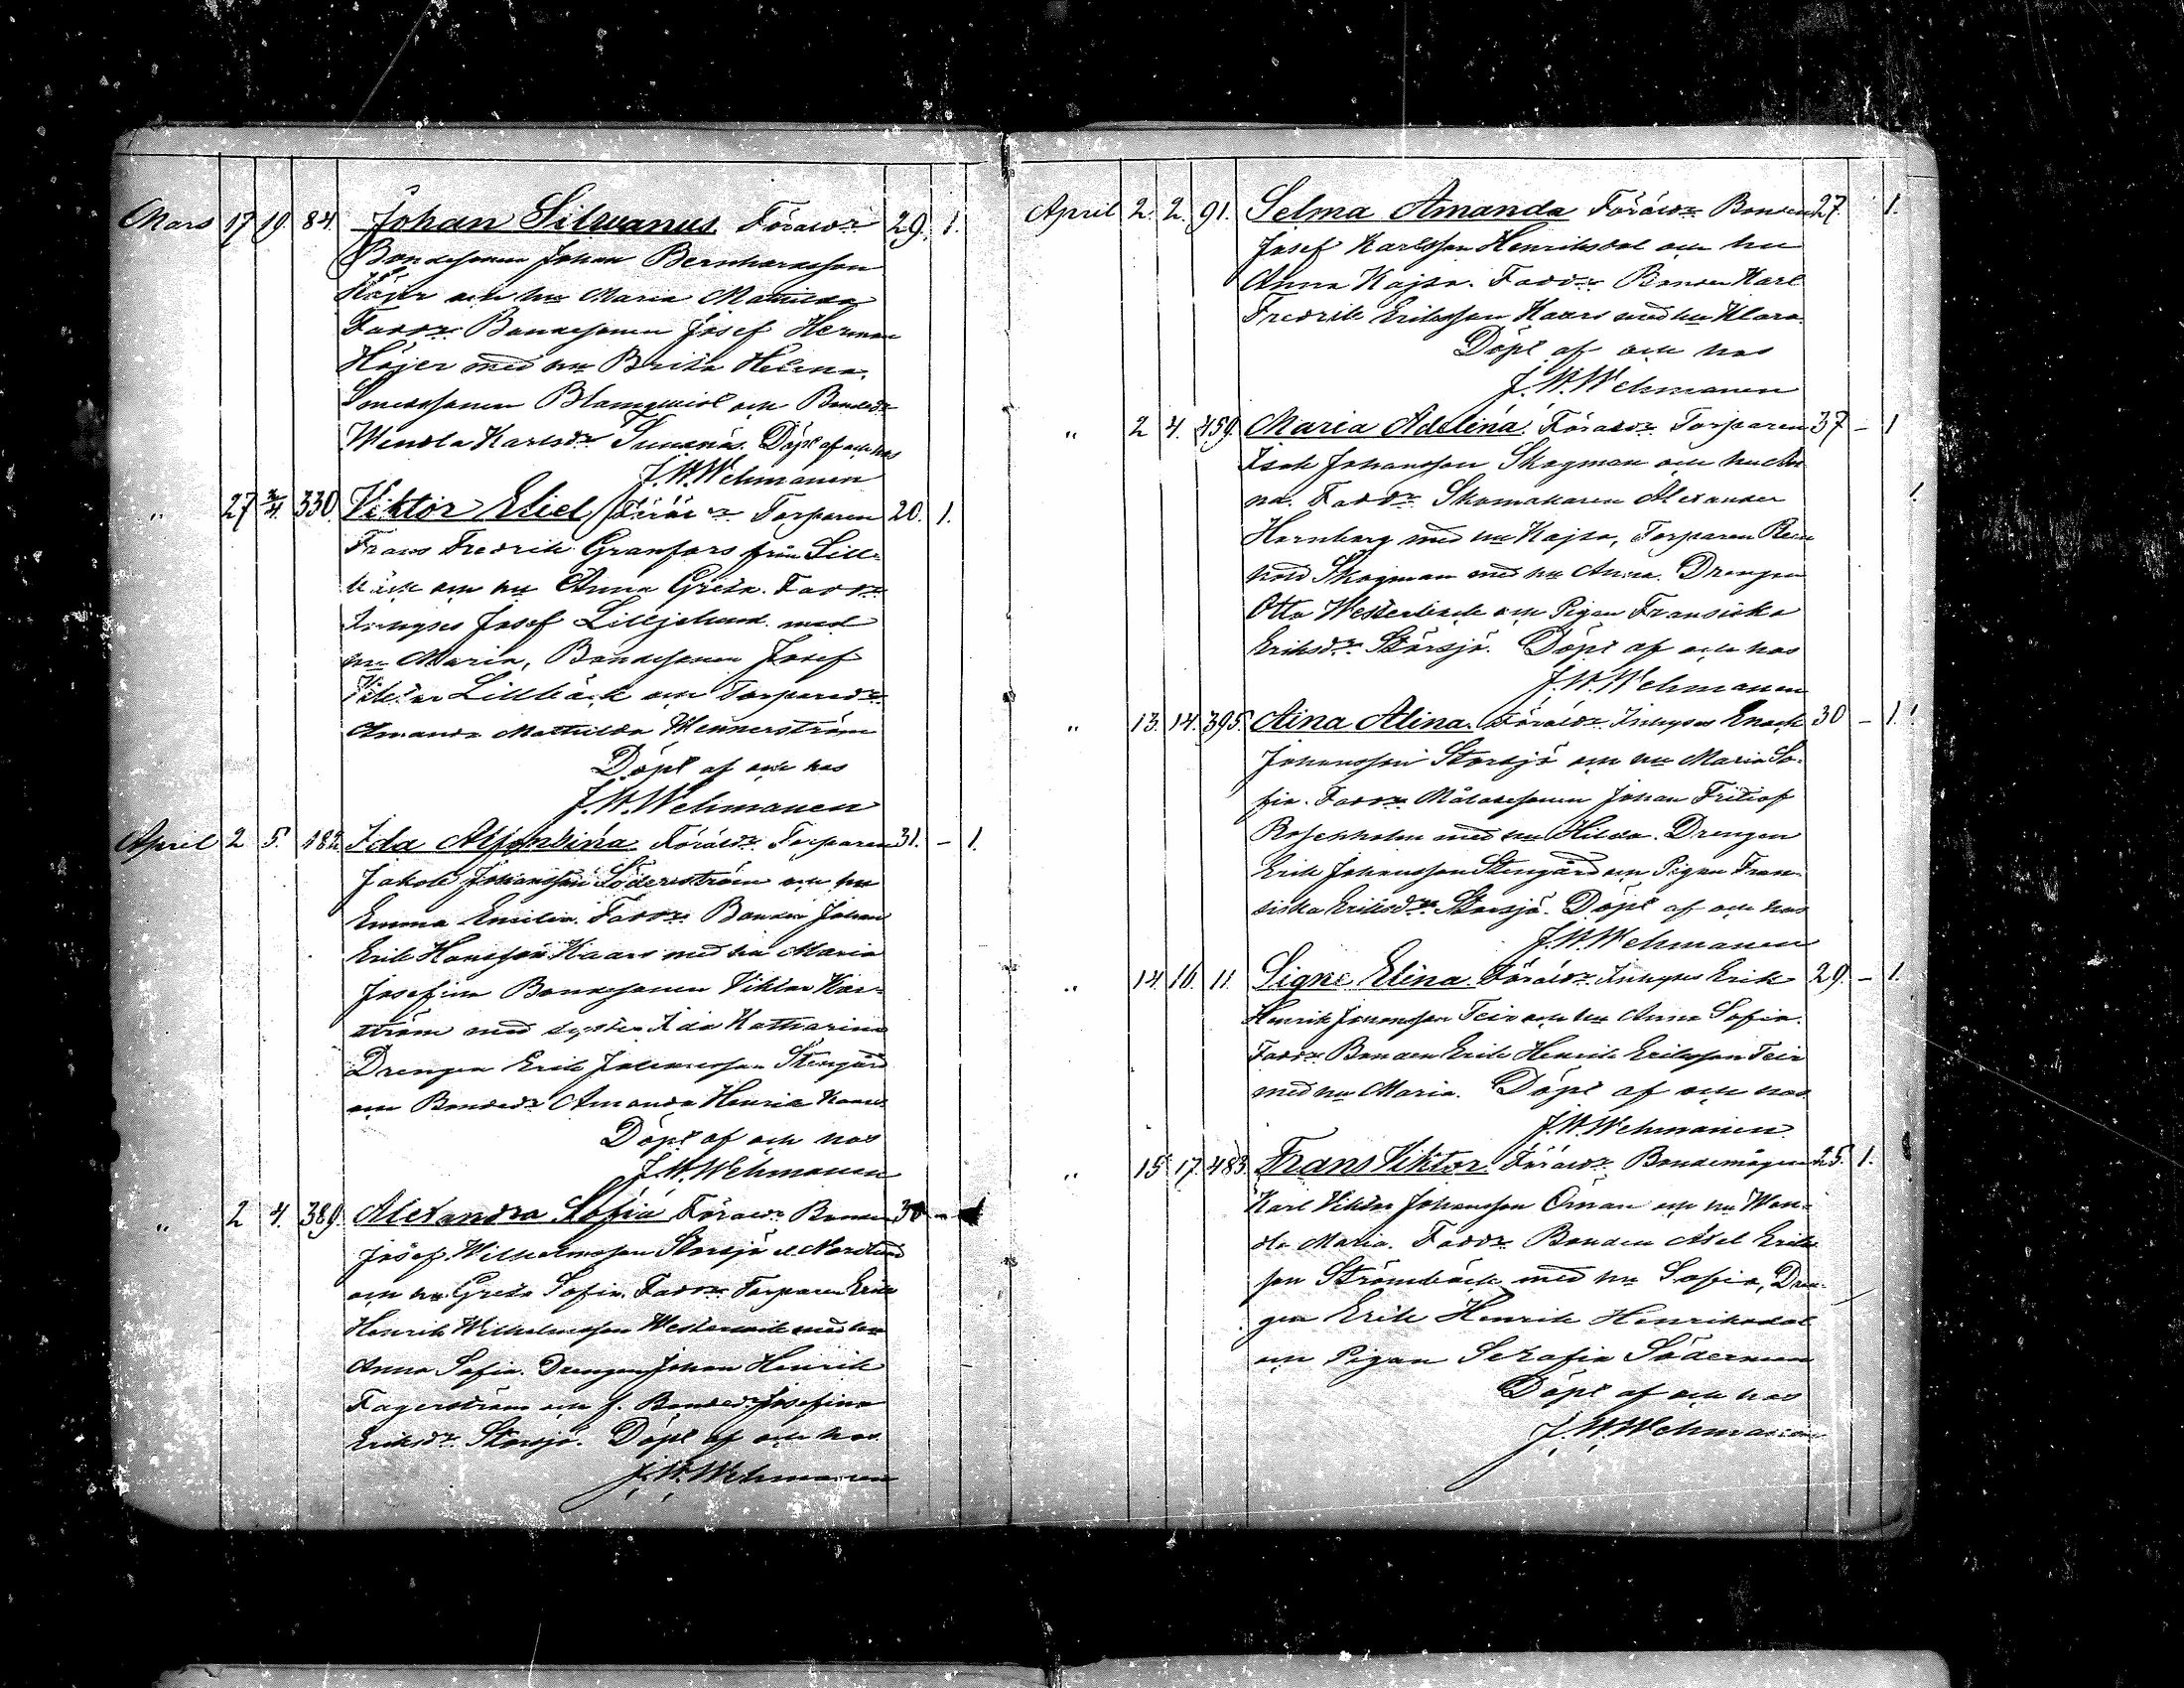 Mars 17 19. 84. Johan Silwanus. Föräldr 29. 1.
Bondesonen Johan Bernhardsson
Höjer och hu Maria Mathilda
Faddr Bondesonen Josef Herman
Höjer med hu Brita Helena.
Blomqvist och Bonded
Wendla Karlsdr Döpt af och hos
J. W. Wehmanen
" 27 2/4 330. Viktor Eliel Föräldr Torparen 20. 1.
Frans Fredrik Granfors från Lill-
bäck och hu Anna Greta. Faddr
Inhyses Josef Lilljelund med
hu Maria, Bondesonen Josef
Viktor Lillbäck och Torpared
Amanda Mathilda Wennerström
Döpt af och hos
J. W. Wehmanen
April 2 5. 182 Ida Alfonsina. Föräldr Torparen 31. – 1.
Jakob Johansson Söderström och hu
Emma Emilia. Faddr Bonden Johan
Erik Hansson Kaars med hu Maria
Josefina Bondesonen Viktor
ström med syster Ida Katharina
Drengen Erik Johansson Stengård
och Bonded Amanda Henrika Kaars
Döpt af och hos
J. W. Wehmanen
" 2 4. 389. Alexandra Sofia Föräldr Bonden 30 – 1
Josef Wilhelmsson Storsjö el Nordlund
och hu Greta Sofia. Faddr Torparen Erik
Henrik Wilhelmsson Westerback med hu
Anna Sofia. Drengen Johan Henrik
Fagerström och f. Bonded Josefina
Eriksdr Storsjö. Döpt af och hos
J. W. Wehmanen
April 2. 2. 91. Selma Amanda Föräldr Bonden 27. 1.
Josef Karlsson Henriksdal och hu
Anna Kajsa. Faddr Bonden Karl
Fredrik Eriksson Kaars med hu Klara.
Döpt af och hos
J. W. Wehmanen
" 2 4. 459. Maria Adelina. Föräldr Torparen 37 – 1
Isak Johansson Skogman och hu An
na. Faddr Skomakaren Alexander
Hornborg med hu Kajsa, Torparen Rein
hold Skogman med hu Anna. Drengen
Otto Westerback och Pigan Fransiska
Eriksdr Storsjö. Döpt af och hos
J. W. Wehmanen
" 13. 14. 395. Aina Alina. Föräldr Inhyses Enock 30 – 1.
Johansson Storsjö och hu Maria So-
fia. Faddr Målaresonen Johan Fritiof
Rosenholm med hu Hilda. Drengen
Erik Johansson Stengård och Pigan Fran-
siska Eriksdr Storsjö. Döpt af och hos
J. W. Wehmanen
" 14. 16. 11. Signe Elina. Föräldr Inhyses Erik 29. – 1.
Henrik Johansson Teir och hu Anna Sofia.
Faddr Bonden Erik Henrik Eriksson Teir
med hu Maria. Döpt af och hos
J. W. Wehmanen
" 15. 17. 483. Frans Viktor. Föräldr Bondemågen 25. 1.
Karl Viktor Johansson Öman och hu Wen-
dla Maria. Faddr Bonden Axel Eriks
son Strömbäck med hu Sofia, Dren-
gen Erik Henrik Henriksdal
och Pigan Serafia Söderman
Döpt af och hos
J. W. Wehmanen